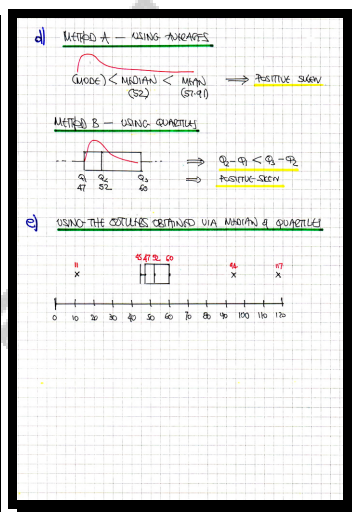 d) METHOD A — USING AVERAGES
(MODE) < MEDIAN < MEAN ⟹ POSITIVE SKEW
(52) (57.91)
METHOD B — USING QUARTILES
⟹ Q₂-Q₁ < Q₃-Q₂
Q₁ Q₂ Q₃ ⟹ POSITIVE SKEW
47 52 60
e) USING THE OUTLIERS OBTAINED VIA MEDIAN & QUARTILES
11 45 47 52 60 117
0 10 20 30 40 50 60 70 80 90 100 110 120